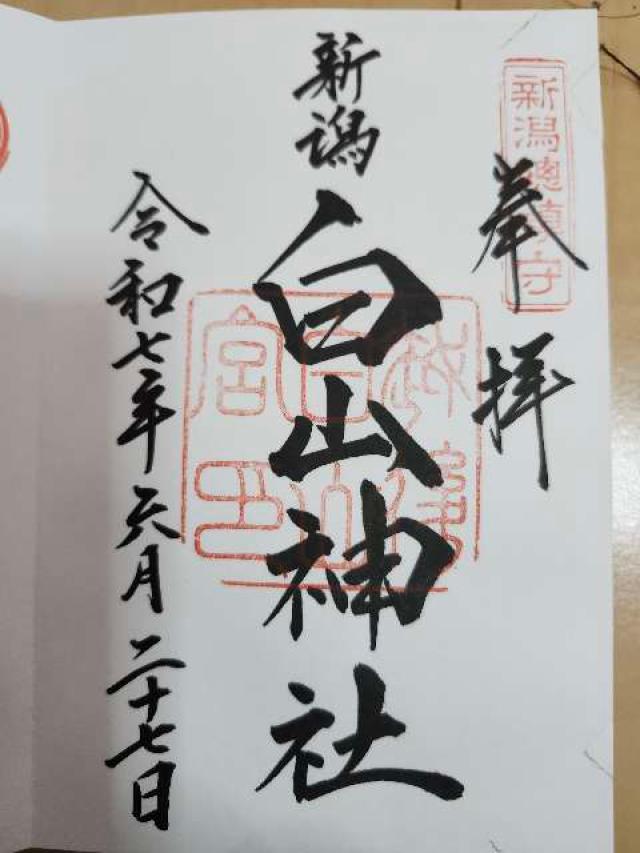 新潟總鎮守
奉拝
新潟
白山神社
越後
白山
宮印
令和七年六月二十七日